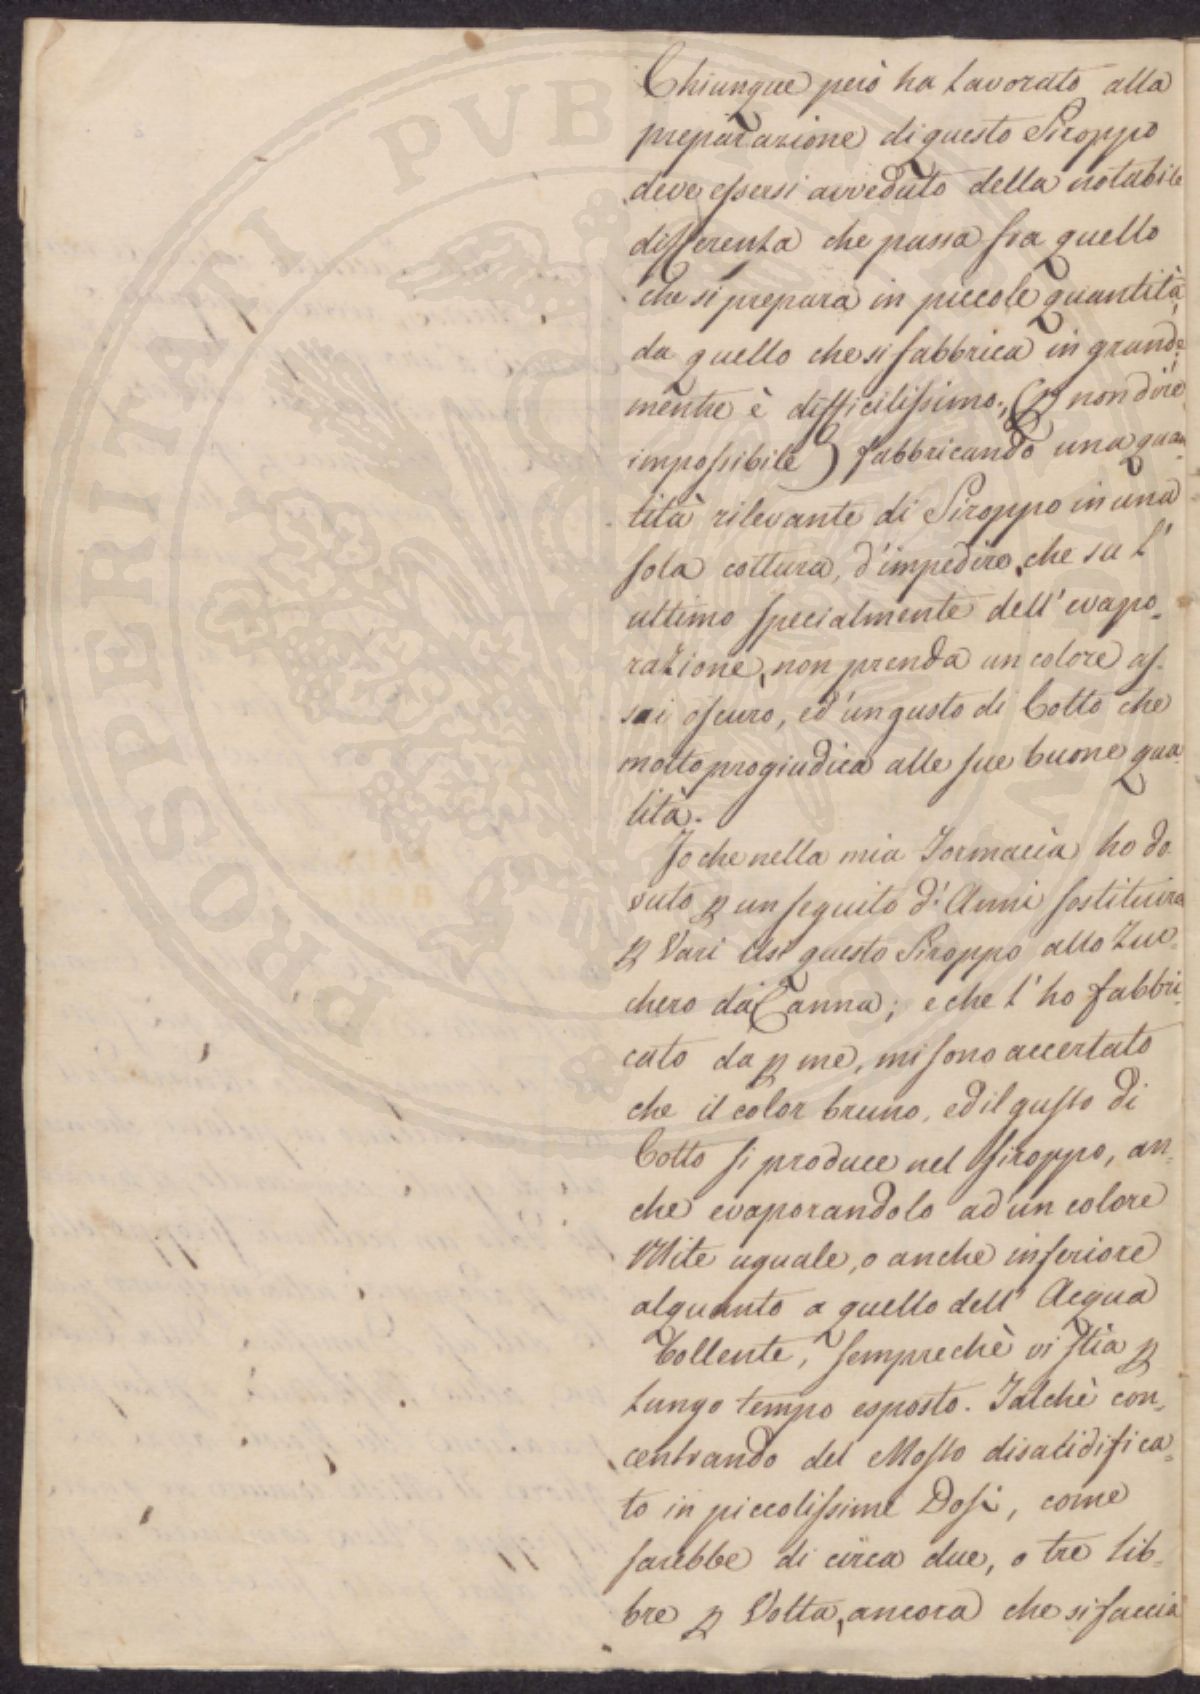 Chiunque però ha lavorato alla
preparazione di questo Siroppo
deve essersi avveduto della notabile
differenza che passa fra quello
che si prepara in piccole quantità,
da quello che si fabbrica in grande,
mentre è difficilissimo, (p non dire
impossibile) fabbricando una quan
tità rilevante di Siroppo in una
sola cottura, d'impedire, che su l'
ultimo specialmente dell'evapo-
razione, non prenda un colore as-
sai oscuro, ed un gusto di Cotto che
molto progiudica alle sue buone qua
lità.
Jo che nella mia Farmacia ho do-
vuto p un seguito d'Anni sostituire
p Vari Usi questo Siroppo allo Zuc-
chero da Canna; e che l'ho fabbri-
cato da p me, mi sono accertato
che il color bruno, ed il gusto di
Cotto si produce nel siroppo, an-
che evaporandolo ad un colore
Mite uguale, o anche inferiore
alquanto a quello dell' Acqua
Bollente, sempreché vi stia p
lungo tempo esposto. Talchè con-
centrando del Mosto disacidifica-
to in piccolissime Dosi, come
sarebbe di circa due, o tre Lib-
bre p Volta, ancora che si faccia
PROSPERITATI PVB